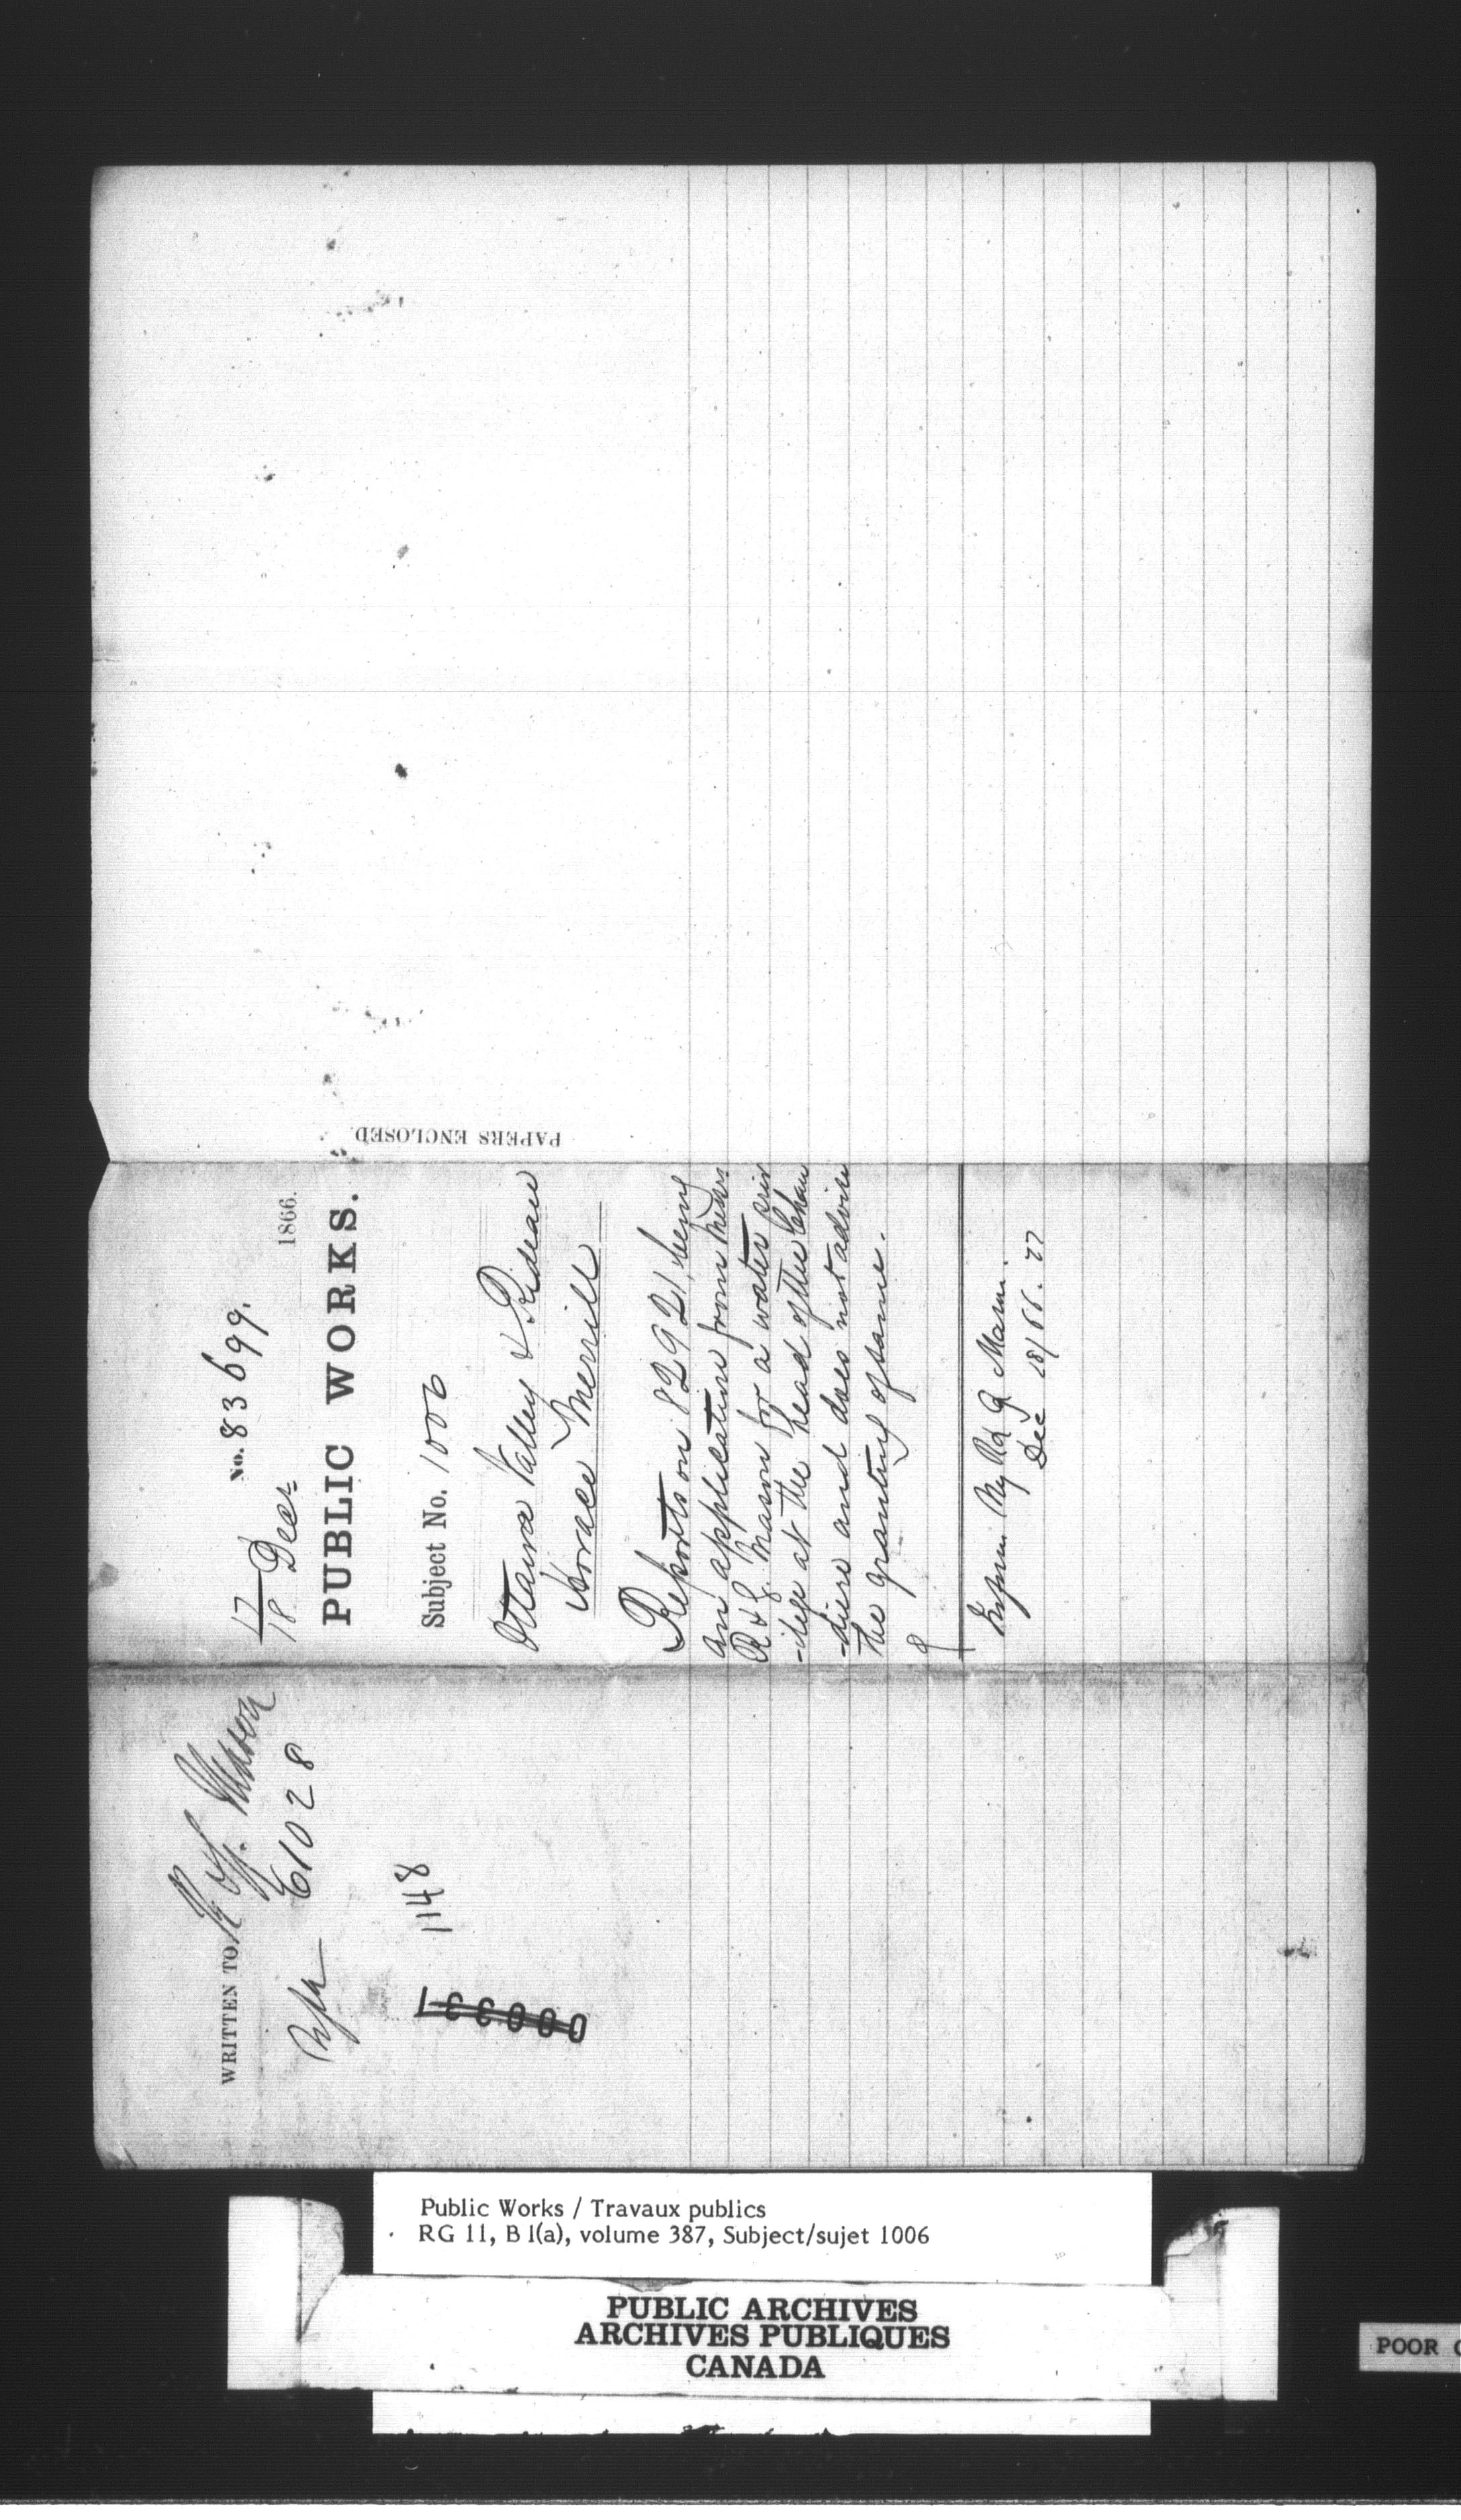 No. 83699.
17/18 Decr 1866.
PUBLIC WORKS.
Subject No. 1006
Ottawa Valley & Rideau
Horace Merrill
Reports on 82921, being
an application from Messrs
R & J. Mason for a water priv
-ilege at the head of the Chau
-diere and does not advise
the granting of same.
Inform My Rd & Mason.
Dec 18/66. 27
PAPERS ENCLOSED
WRITTEN TO R & J. Mason
61028
1148
000337
Public Works / Travaux publics
RG 11, B 1(a), volume 387, Subject/sujet 1006
PUBLIC ARCHIVES
ARCHIVES PUBLIQUES
CANADA
POOR